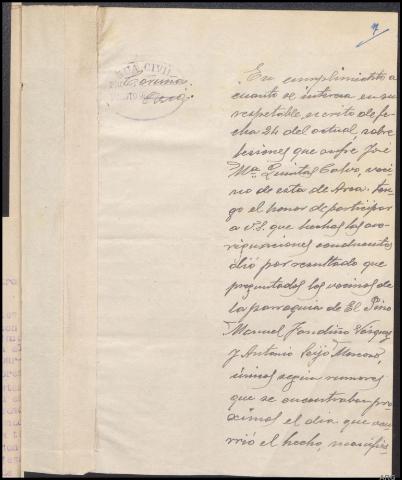 4
CIVIL
Coruña
Arca
En cumplimiento a
cuanto se interesa en su
respetable escrito de fe-
cha 24 del actual, sobre
lesiones que sufre José
Mª Quintas Calvo, veci-
no de esta de Arca. ten-
go el honor de participar
a V.S. que hechas las ave-
riguaciones conducentes
dió por resultado que
preguntados los vecinos de
la parroquia de El Pino
Manuel Vázquez
y Antonio Seijo
únicos según rumores
que se encontraban pró-
ximos el dia que ocu-
rrió el hecho, manifies-